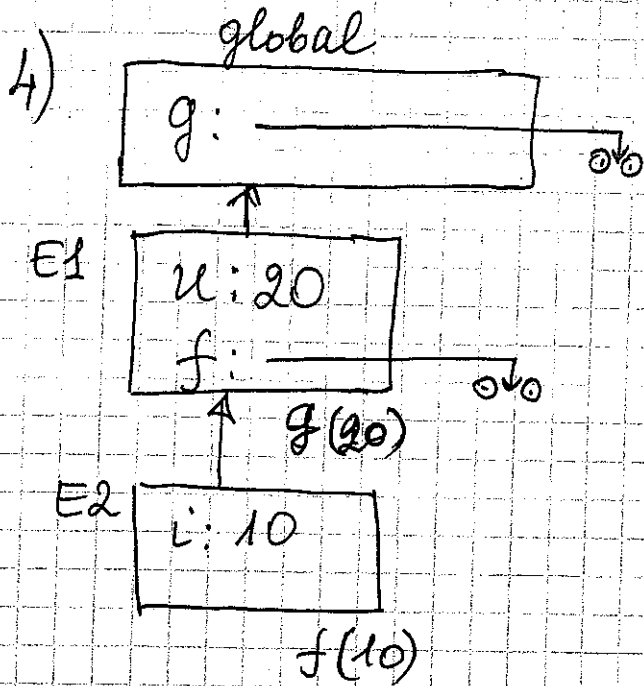 4)
global
g:
E1
n: 20
f:
g(20)
E2
i: 10
f(10)